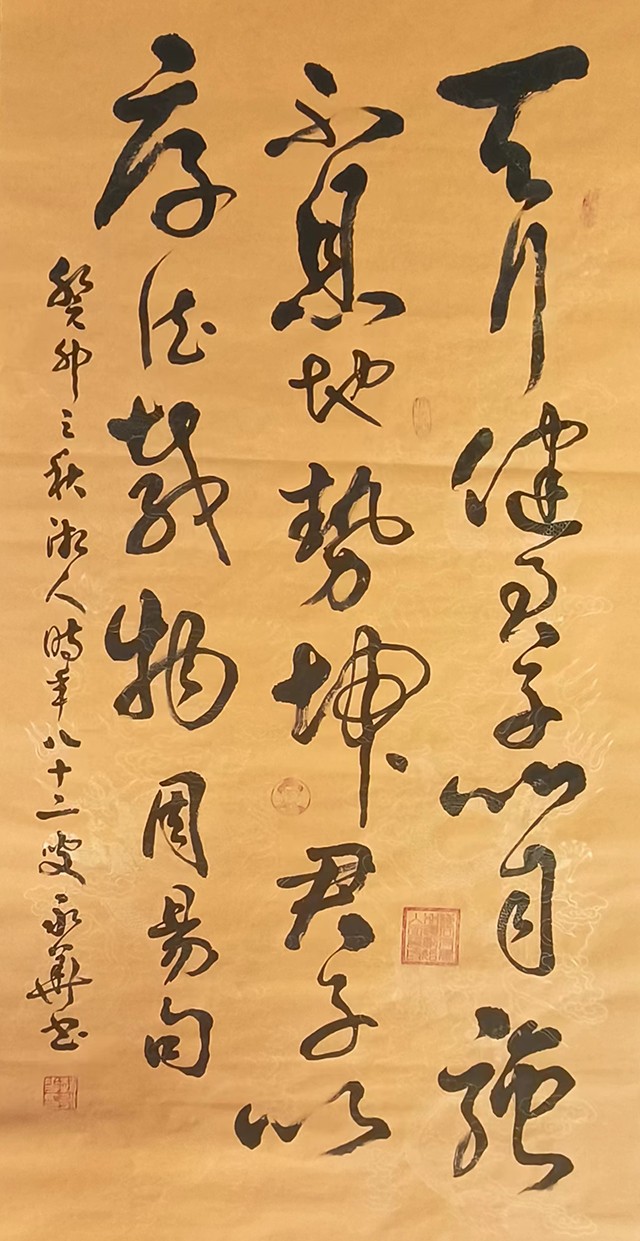 天行健君子以自強
不息地勢坤君子以
厚德載物周易句
癸卯之秋湘人時年八十二叟永華書